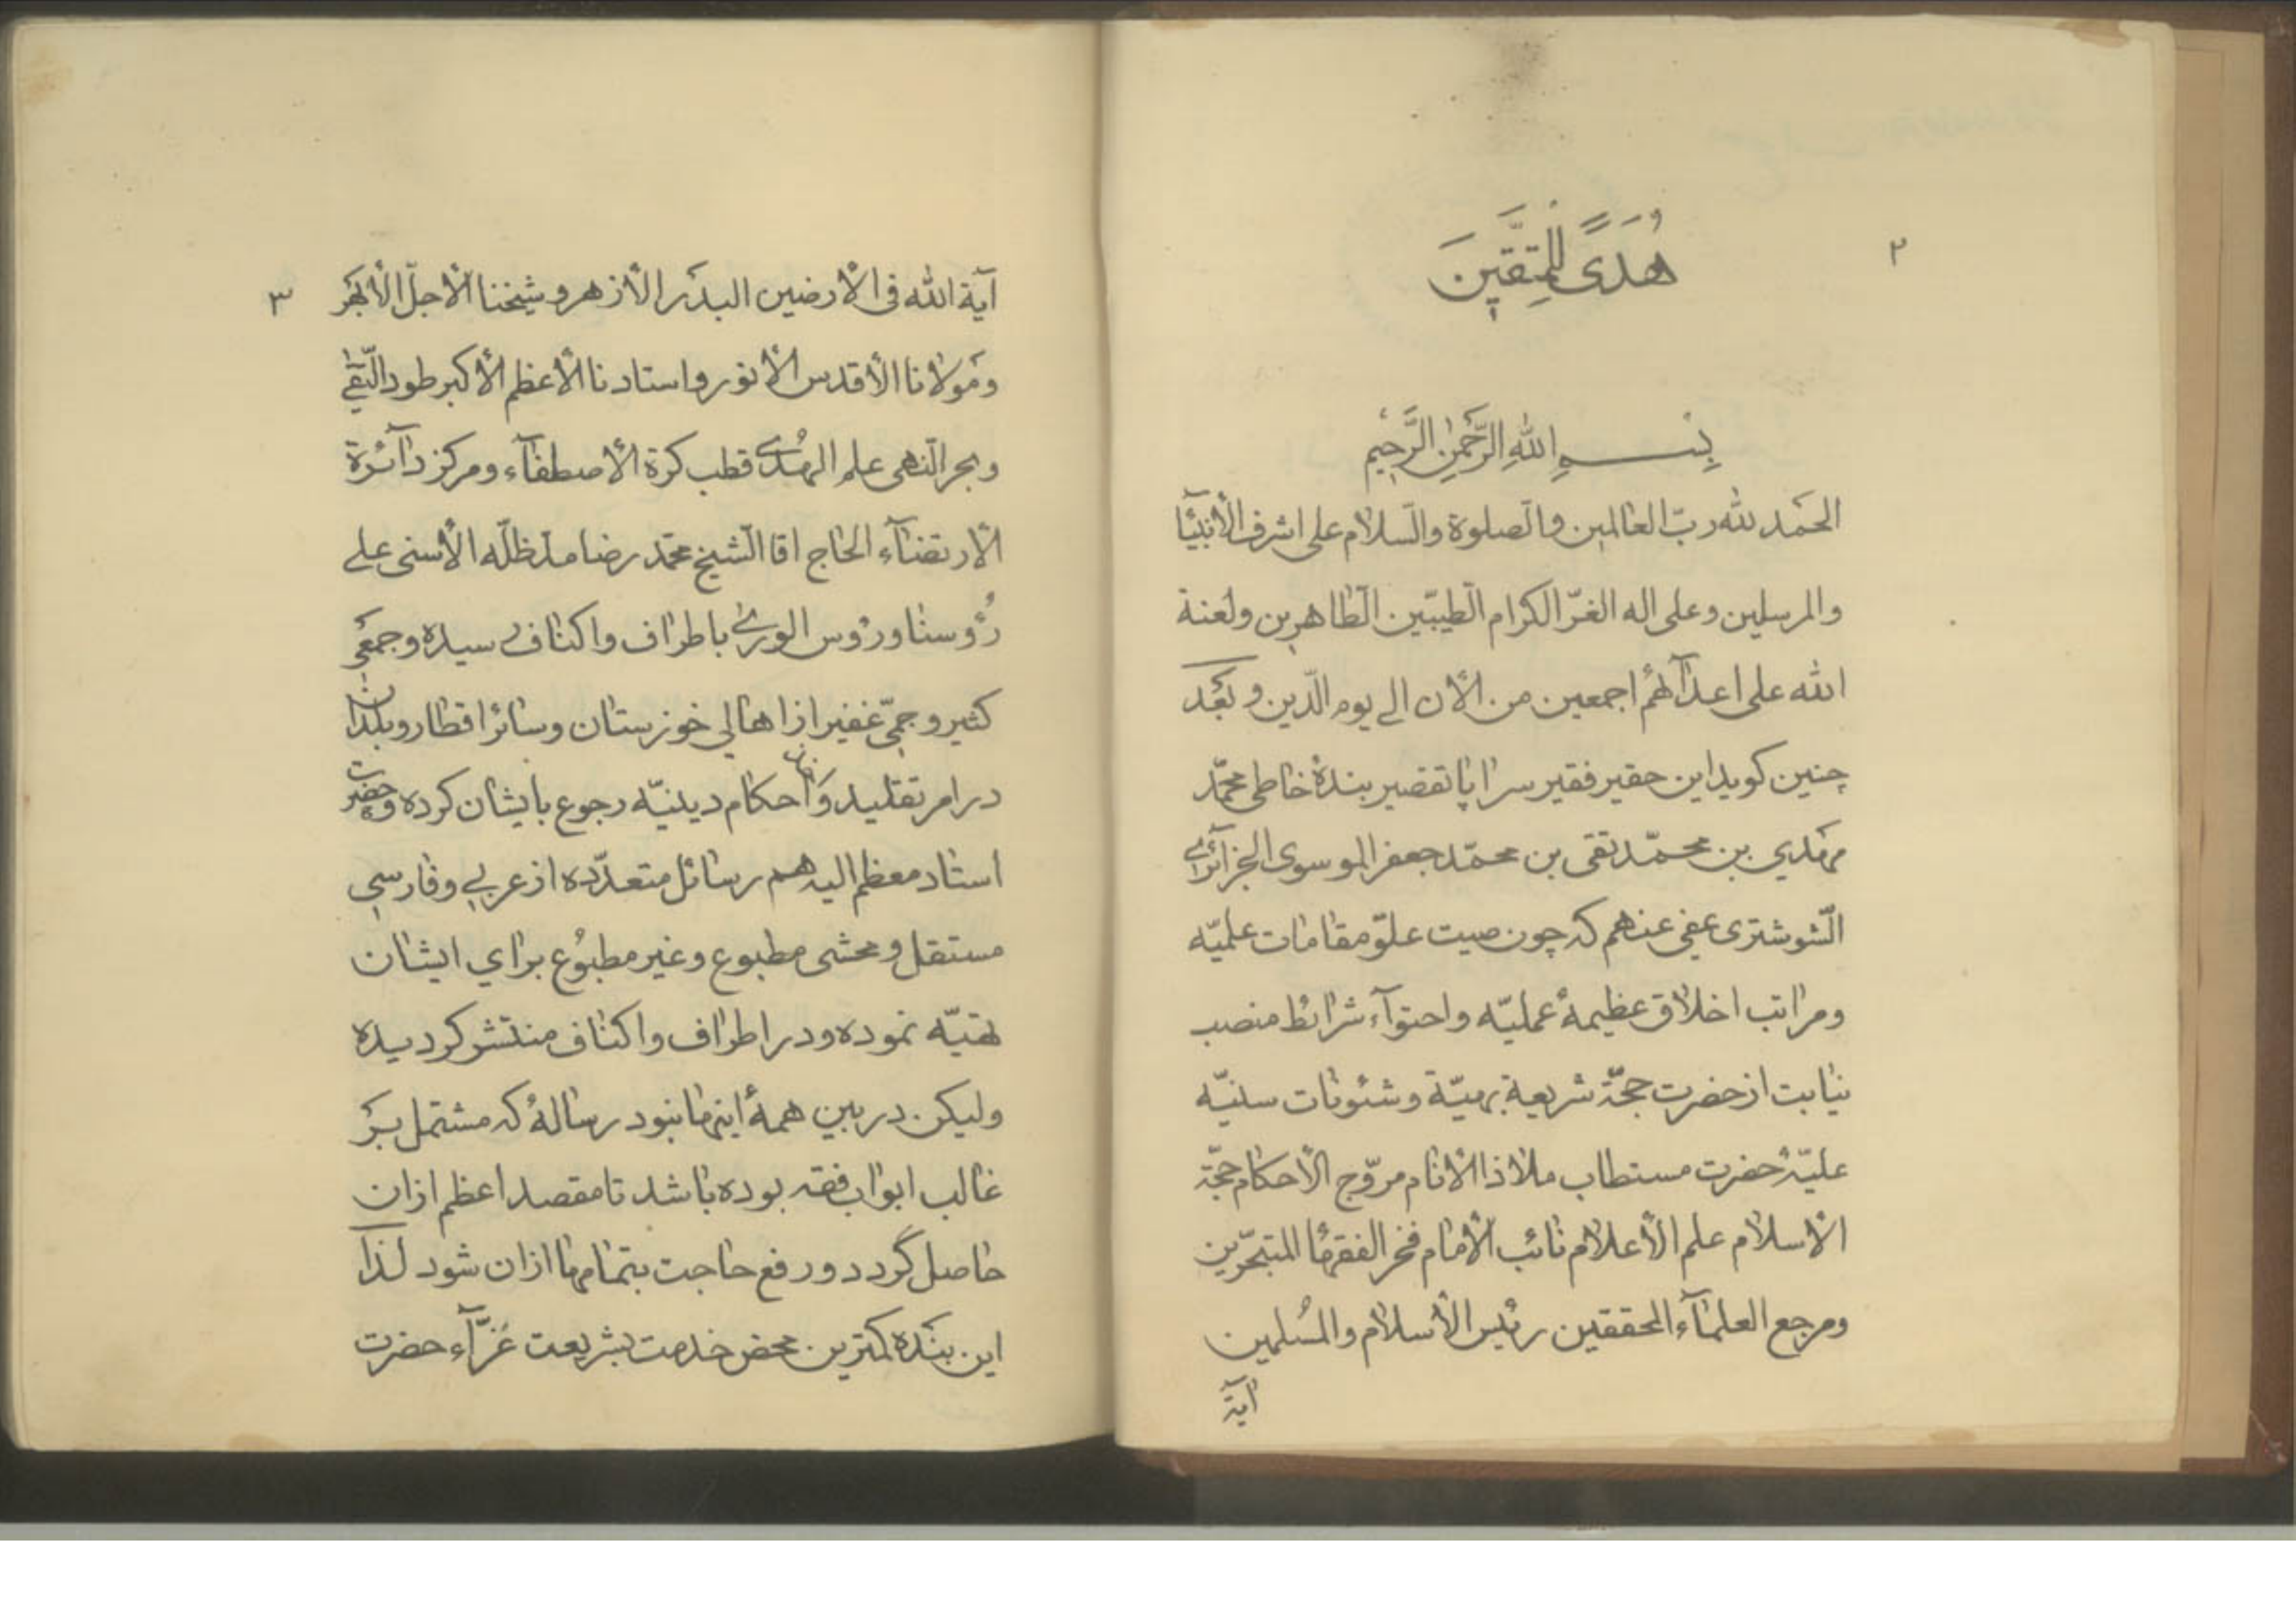 ۲
هُدَىً لِلْمُتَّقینَ
بِسْمِ اللهِ الرَّحْمٰنِ الرَّحیٖمِ
الحَمد لله ربّ العالمین والصّلوة والسّلام علی اشرف الأنبیآ
والمرسلین وعلی اله الغرّ الکرام الطّیبّین الطّاهرین ولعنة
الله علی اعدآئهم اجمعین من الأن الی یوم الدّین وبَعَد
چنین کوید این حقیر فقیر سراپا تقصیر بندۀ خاطی محمّد
مهدي بن محمّد تقی بن محمّد جعفر الموسوی الجزآئری
الشّوشتری عفی عنهم که چون صیت علوّ مقامات علمیّه
ومراتب اخلاق عظیمۀ عملیّه واحتوآء شرائط منصب
نیابت از حضرت حجّة شریعة بهیّة وشئونات سنیّه
علیّۀ حضرت مستطاب ملاذ الأنام مروّج الأحکام حجّة
الأسلام علم الأعلام نائب الأمام فخر الفقهاء المتبحّرین
ومرجع العلمآء المحققین رئیس الأسلام والمُسلمین
آیة
۳
آیة الله فی الأرضین البدَر الأزهر وشیخنا الأجلّ الأبهَر
ومَولانا الأقدس الأنور واستادنا الأعظم الأکبر طود التّقی
وبحر النّهی علم الهُدی قطب کرة الأصطفآء ومرکز دآئرة
الأرتضآء الحاج اقا الشّیخ محمّد رضا مدّ ظلّه الأسنی علی
رُؤوسنا ورؤس الوری باطراف واکناف رسیده وجمعی
کثیر وجمّی غفیر از اهالی خوزستان وسائر اقطار وبلدان
در امر تقلید واخذ احکام دینیّه رجوع بایشان کرده وحضرت
استاد معظم الیه هم رسائل متعدّده از عربی وفارسی
مستقل ومحشی مطبوع وغیر مطبُوع برای ایشان
تهیّه نموده ودر اطراف واکناف منتشر کردیده
ولیکن در بین همۀ اینها نبود رسالۀ که مشتمل بَر
غالب ابواب فقه بوده باشد تا مقصد اعظم ازان
حاصل گردد ورفع حاجت بتمامها ازان شود لذآ
این بنَده کمترین محض خدمت بشریعت غرّآء حضرت